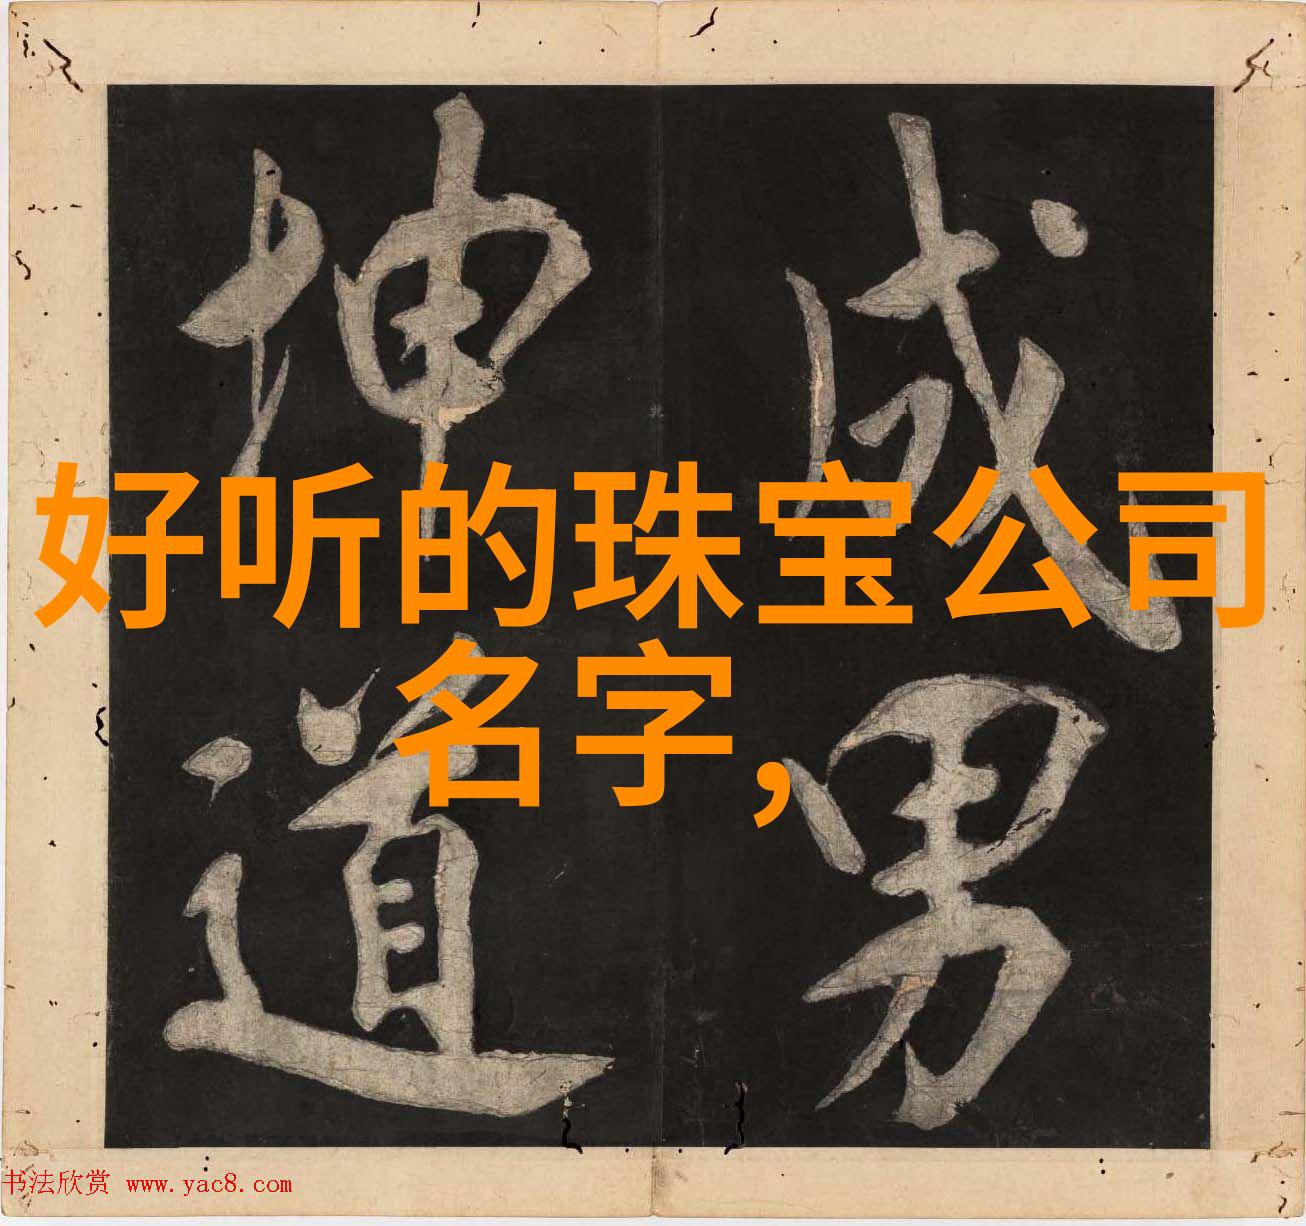 成男
坤道
好听的珠宝公司
名字，
书法欣赏 www.yac8.com